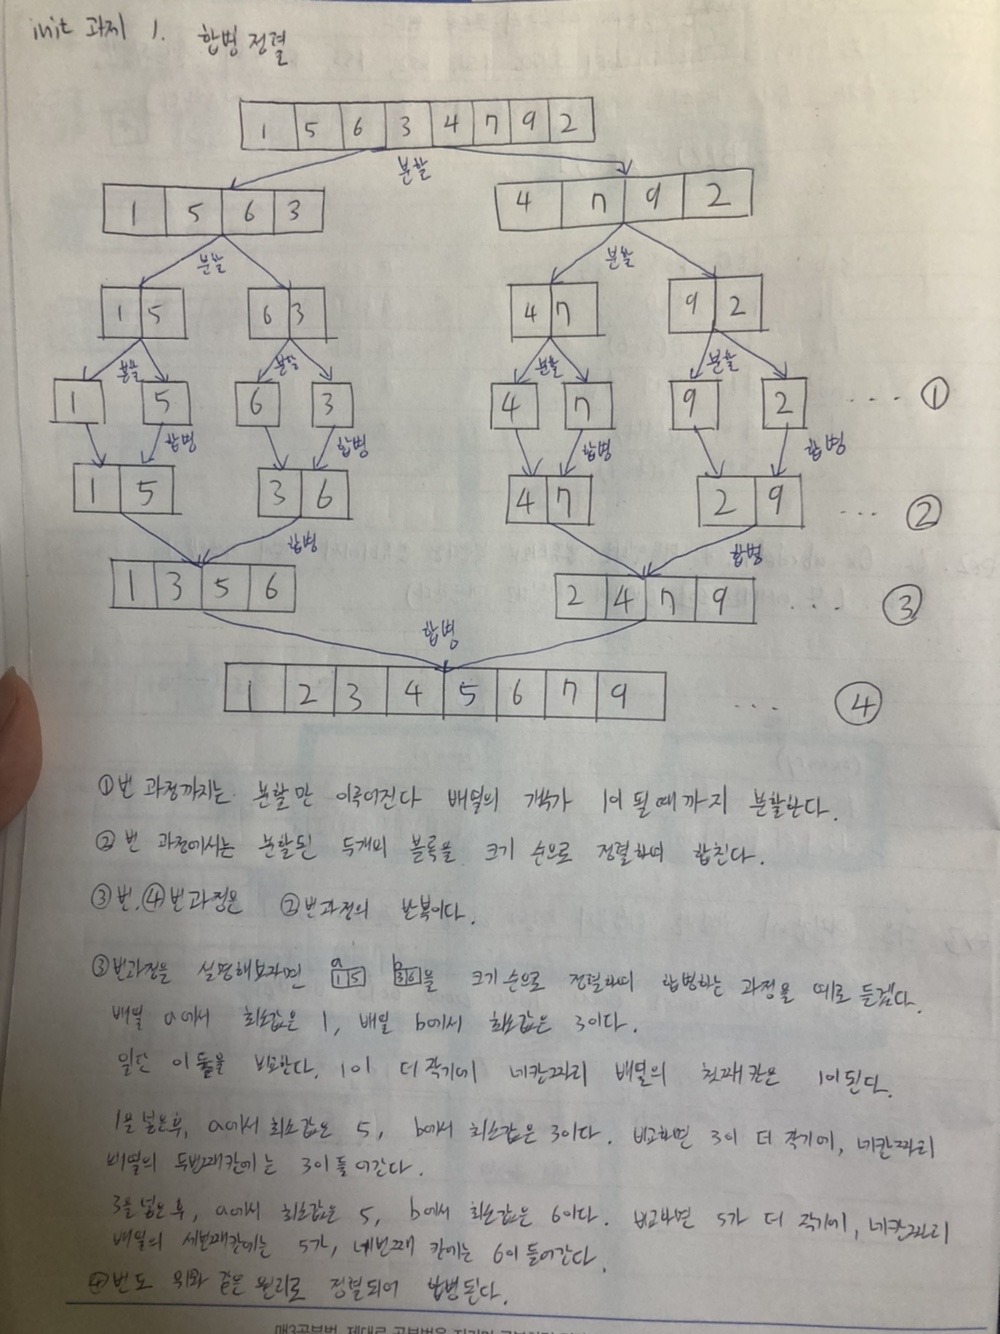 init 과제 1. 합병 정렬
1 5 6 3 4 7 9 2
분할
1 5 6 3 4 7 9 2
분할 분할
1 5 6 3 4 7 9 2
분할 분할 분할 분할
1 5 6 3 4 7 9 2 ... ①
합병 합병 합병 합병
1 5 3 6 4 7 2 9 ... ②
합병 합병
1 3 5 6 2 4 7 9 ... ③
합병
1 2 3 4 5 6 7 9 ... ④
①번 과정까지는 분할만 이루어진다 배열의 개수가 1이 될때까지 분할한다.
②번 과정에서는 분할된 두개의 블록을 크기 순으로 정렬하며 합친다.
③번, ④번과정은 ②번과정의 반복이다.
③번과정을 설명해보자면 a 1 5 b 3 6 을 크기순으로 정렬하며 합병하는 과정을 예로 들겠다.
배열 a에서 최소값은 1, 배열 b에서 최소값은 3이다.
일단 이 둘을 비교한다. 1이 더 작기에 네칸짜리 배열의 첫째 칸은 1이 된다.
1을 넣은후, a에서 최소값은 5, b에서 최소값은 3이다. 비교하면 3이 더 작기에, 네칸짜리
배열의 두번째칸에는 3이 들어간다.
3을 넣은 후, a에서 최소값은 5, b에서 최소값은 6이다. 비교하면 5가 더 작기에, 네칸짜리
배열의 세번째칸에는 5가, 네번째 칸에는 6이 들어간다.
④번도 위와 같은 원리로 정렬되어 합병된다.